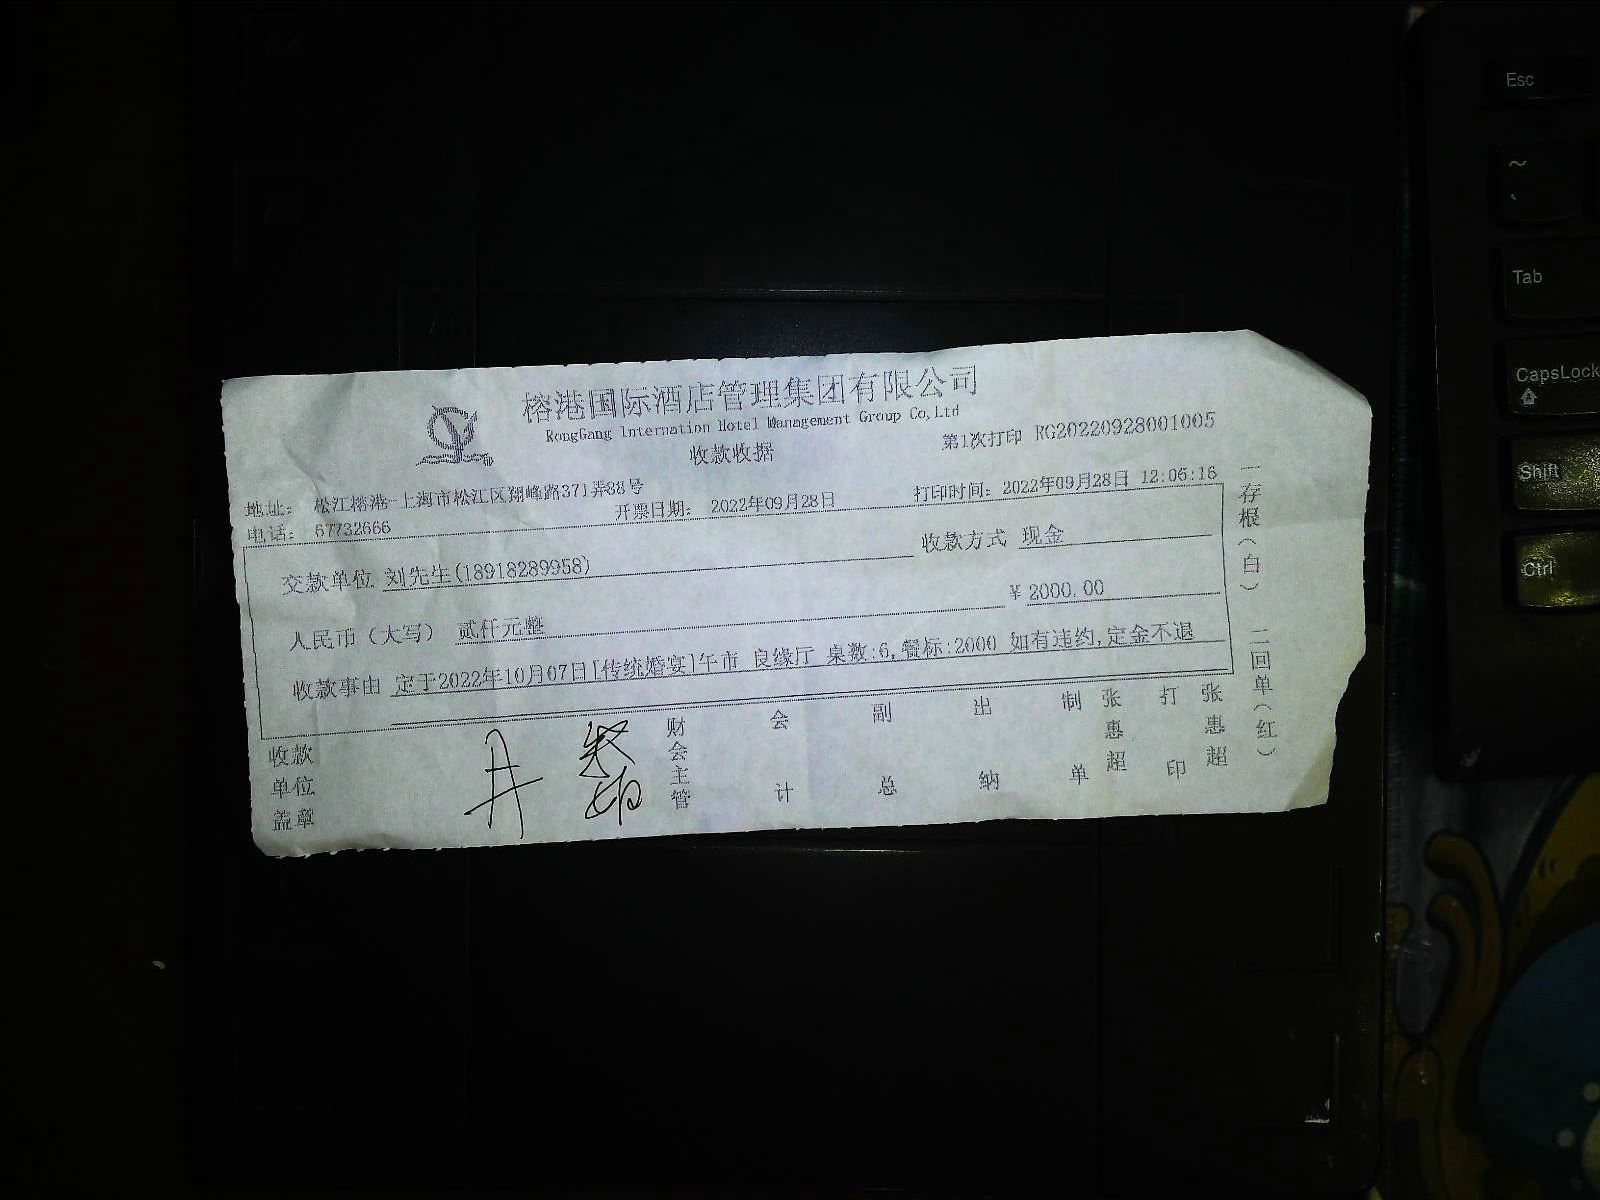 榕港国际酒店管理集团有限公司
RongGang Internation Hotel Management Group Co,Ltd
收款收据
第1次打印 RG20220928001005
地址: 松江榕港-上海市松江区翔峰路371弄88号
电话: 67732666
开票日期: 2022年09月28日
打印时间: 2022年09月28日 12:06:16
交款单位 刘先生(18918289958)
收款方式 现金
人民币(大写) 贰仟元整
¥ 2000.00
收款事由 定于2022年10月07日[传统婚宴]午市 良缘厅 桌数:6,餐标:2000 如有违约,定金不退
收款单位盖章
财会主管
会计
副总
出纳
制单
张惠超
打印
张惠超
一存根(白) 二回单(红)
Esc
~
`
Tab
CapsLock
Shift
Ctrl